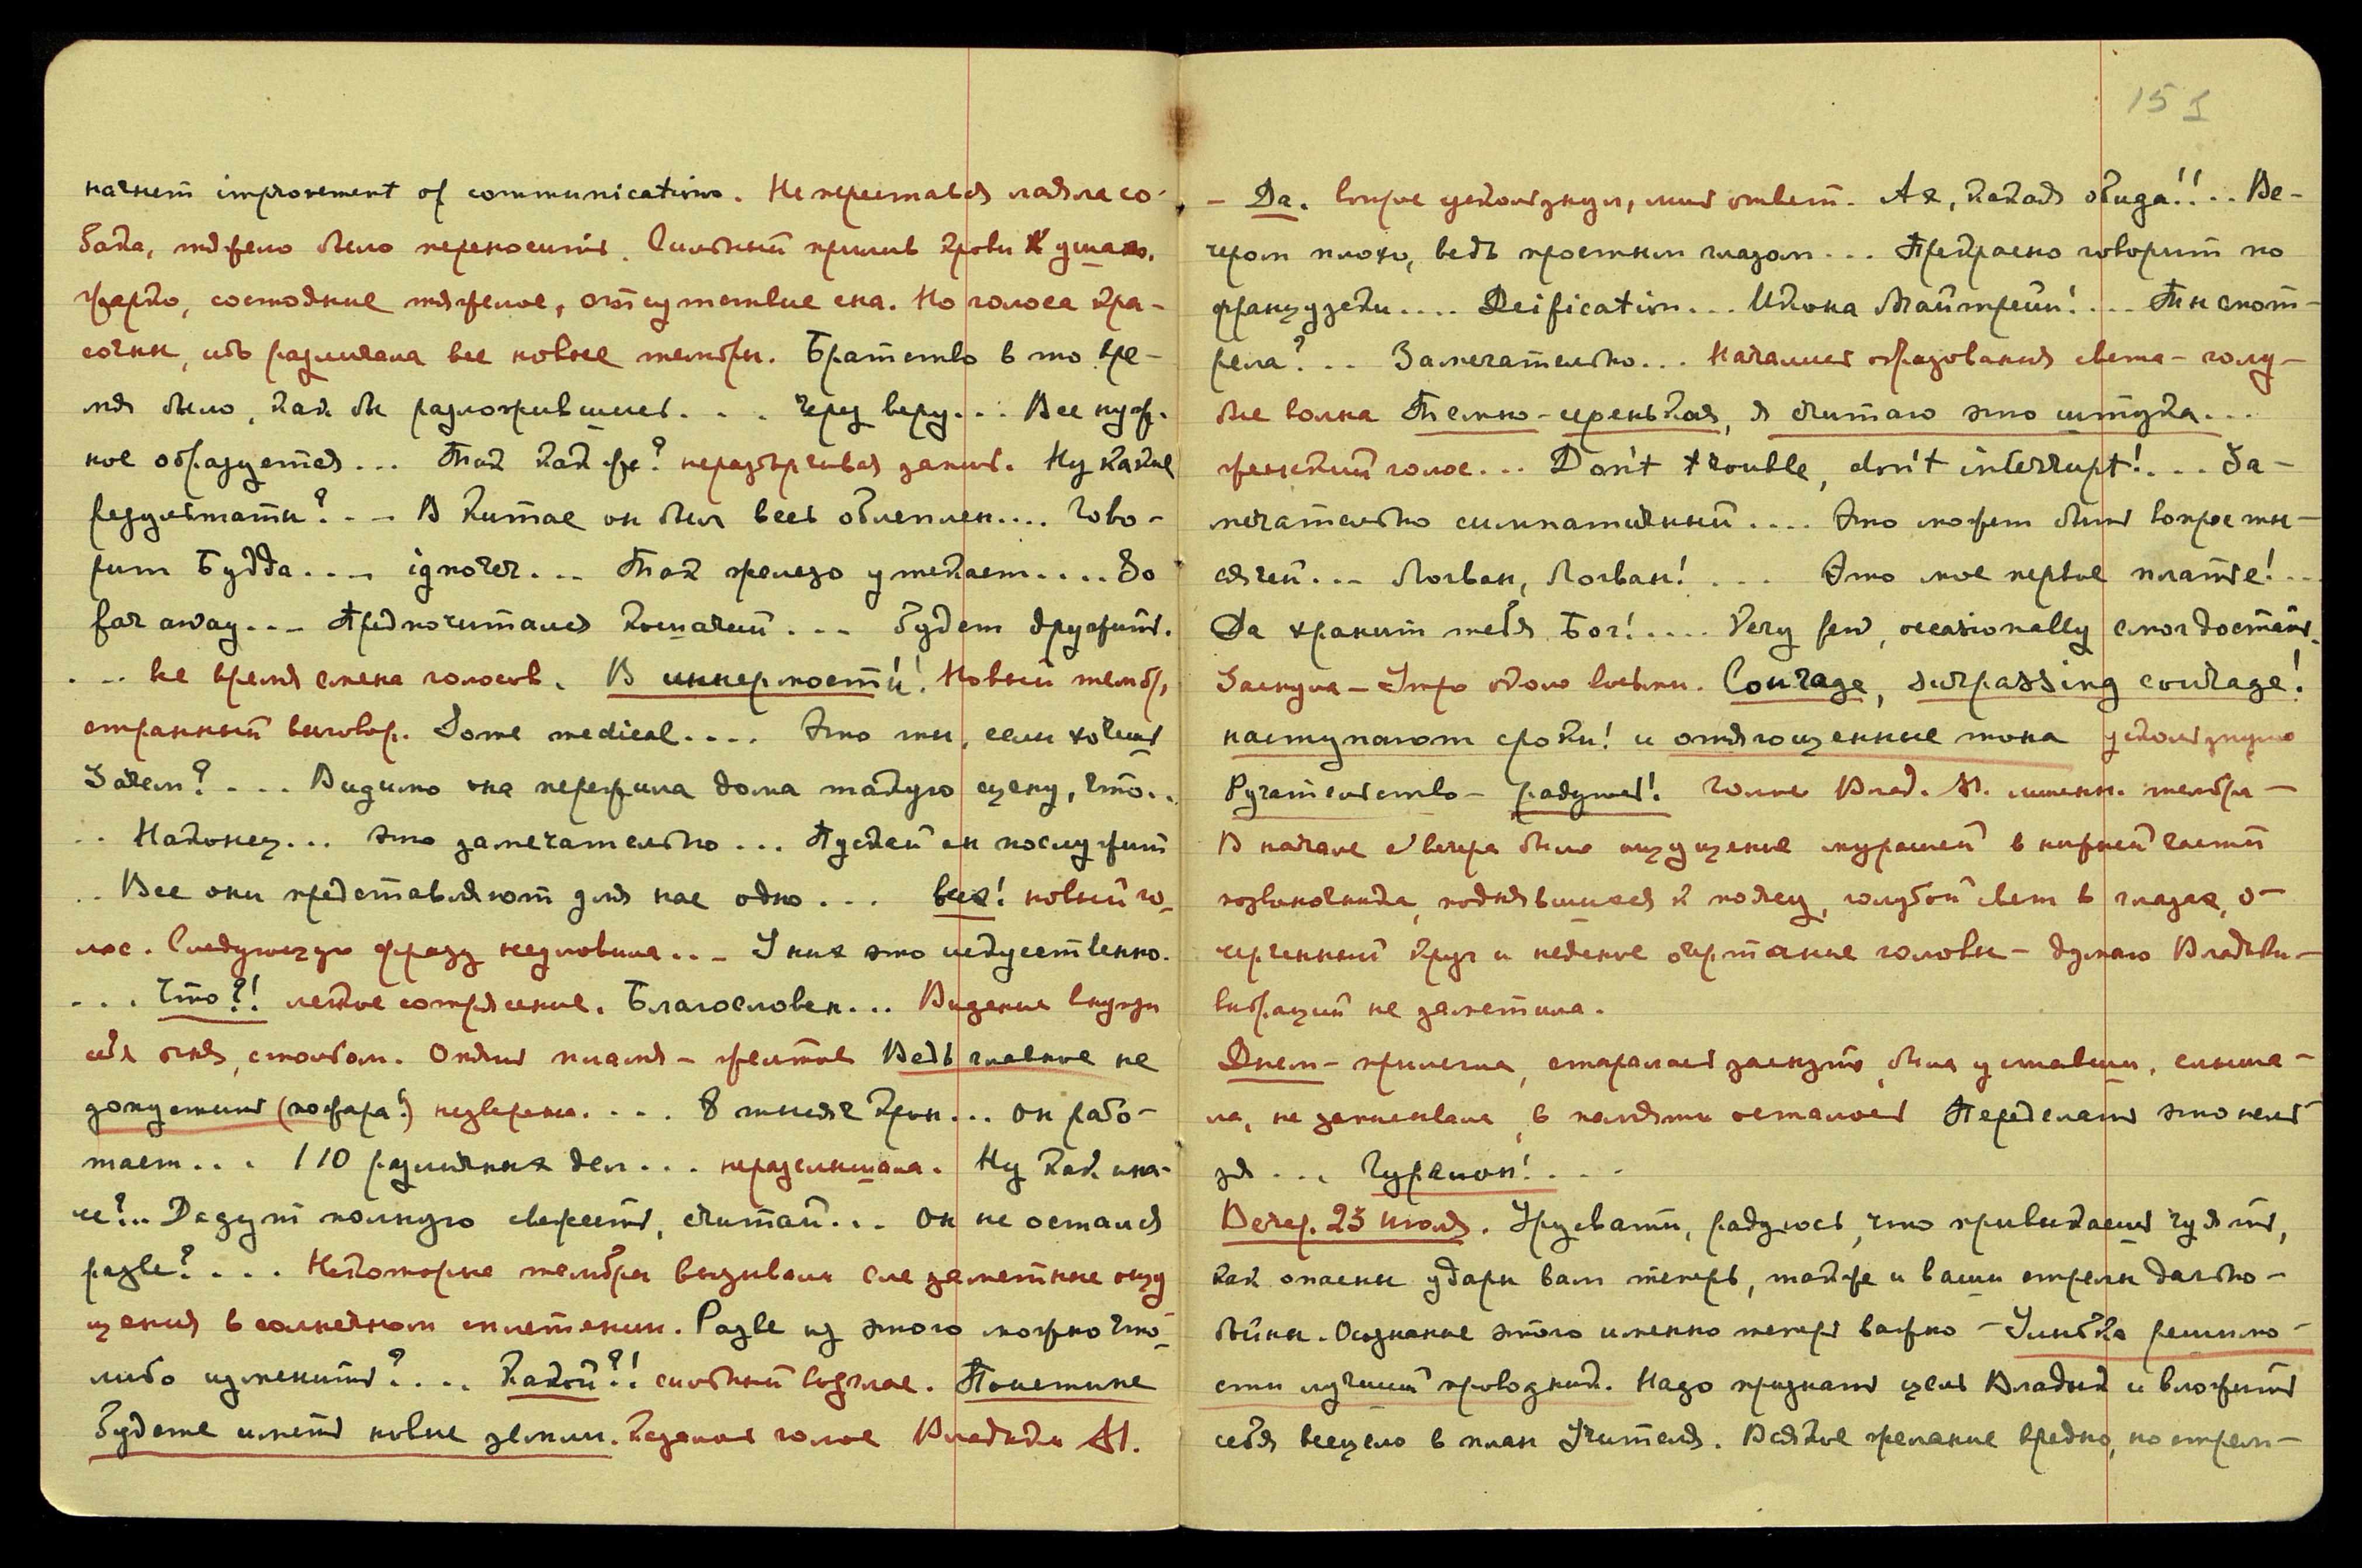 начнет improvement of communications. Не переставая лаяла со-
бака, тяжело было переносить. Сильный прилив крови к ушам,
жарко, состояние тяжелое, отсутствие сна. Но голоса кра-
сочны, ибо различала все новые тембры. Братство в то вре-
мя было, как бы разложившись. . . . Через веру... Все нуж-
ное образуется... Так как же? неразборчивая запись. Ну какие
результаты?... В Китае он был весь облеплен.... Гово-
рит Будда.... ignorer... Так железо утекает.... So
far away... Предпочитался ... Будет дружить.
... все время смена голосов. В инкермости! Новый тембр,
странный выговор. Some medical.... Это ты, если хочешь
Зачем?.... Видимо она пережила дома такую сцену, что..
.. Наконец... это замечательно... Пускай он послужит
.. Все они представляют для нас одно... всех! новый го-
лос. Следующую фразу неуловила... У них это искусственно.
... Что?! легкое сотрясение. Благословен... Видение внутри
себя огня, столбом. Опять пламя – желтое Ведь главное не
допустить (пожара?) неуверена.... 8 тысяч крон... он рабо-
тает... 110 различных дел... неразслышала. Ну как ина-
че?.. Дадут полную свежесть, считай... Он не остался
разве?.... Некоторые тембры вызывали еле заметные ощу
щения в солнечном сплетении. Разве из этого можно что-
либо изменить?.... Какой?! сильный возглас. Поистине
будете иметь новые земли. Казалось голос Владыки М.
151
– Да. Вопрос ускользнул, лишь ответ. Ах, какая обида!!... Ве-
чером плохо, ведь простым глазом... Прекрасно говорит по
французски.... Deification... Икона Майтрейи!... Ты смот-
рела?... Замечательно... Начались образования света – голу-
бые волна Темно-серенькая, я считаю это штука...
женский голос... Don't trouble, don't interrupt!... За-
мечательно симпатичный.... Это может быть вопрос ты-
сячей... Логван, Логван!.... Это мое первое платье!...
Да хранит тебя Бог!.... Very few, occasionally смог достать.
Заснула – Утро около восьми. Courage, surpassing courage!
наступают сроки! и отягощенные тона ускользнуло
Ручательство – радуюсь! Голос Влад. М. тембра –
В начале вечера было ощущение мурашей в нижней части
позвоночника, поднявшихся к поясу, голубой свет в глазах, о-
черченный круг и неясные очертание головы – думаю Владыки –
вибраций не заметила.
Днем – прилегла, старалась заснуть, была уставши, слыша-
ла, не записывала, в памяти осталось Переделать это нель-
зя.... Гурамон!....
Вечер. 23 июля. Урусвати, радуюсь, что привыкаешь чуять,
как опасны удары вам теперь, также и ваши стрелы дально-
бойны. Осознание этого именно теперь важно – Улыбка решимо-
сти лучший проводник. Надо признать цель Владык и вложить
себя всецело в план Учителя. Всякое желание вредно, но стрем-